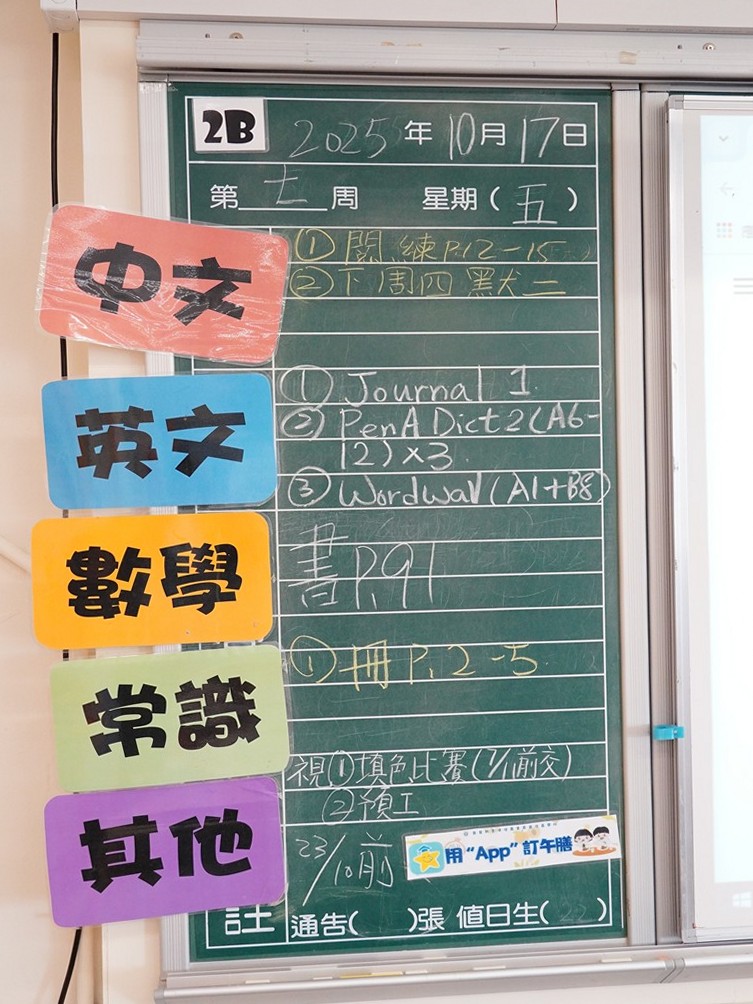 2B
2025年10月17日
第七周 星期(五)
中文
①閱練P.12-15
②下周四默二
英文
①Journal 1.
②PenADict2(A6-
12)×3
③Wordwall(A1+B8)
數學
書P.91
常識
①冊P.2-5
其他
視①填色比賽(7/11前交)
②預工
23/10前
用“App”訂午膳
註
通告( )張 值日生(22)